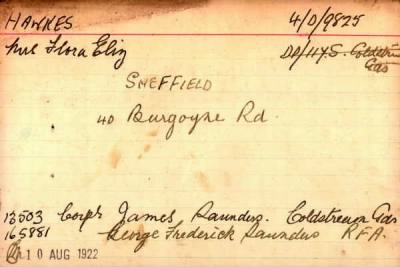 HAWKES 4/D/9825
Mrs Flora Eliz DP/4 Coldstrm
Gds
SHEFFIELD
40 Burgoyne Rd.
13503 Corpl James Saunders. Coldstream Gds
165881 George Frederick Saunders R F A.
10 AUG 1922